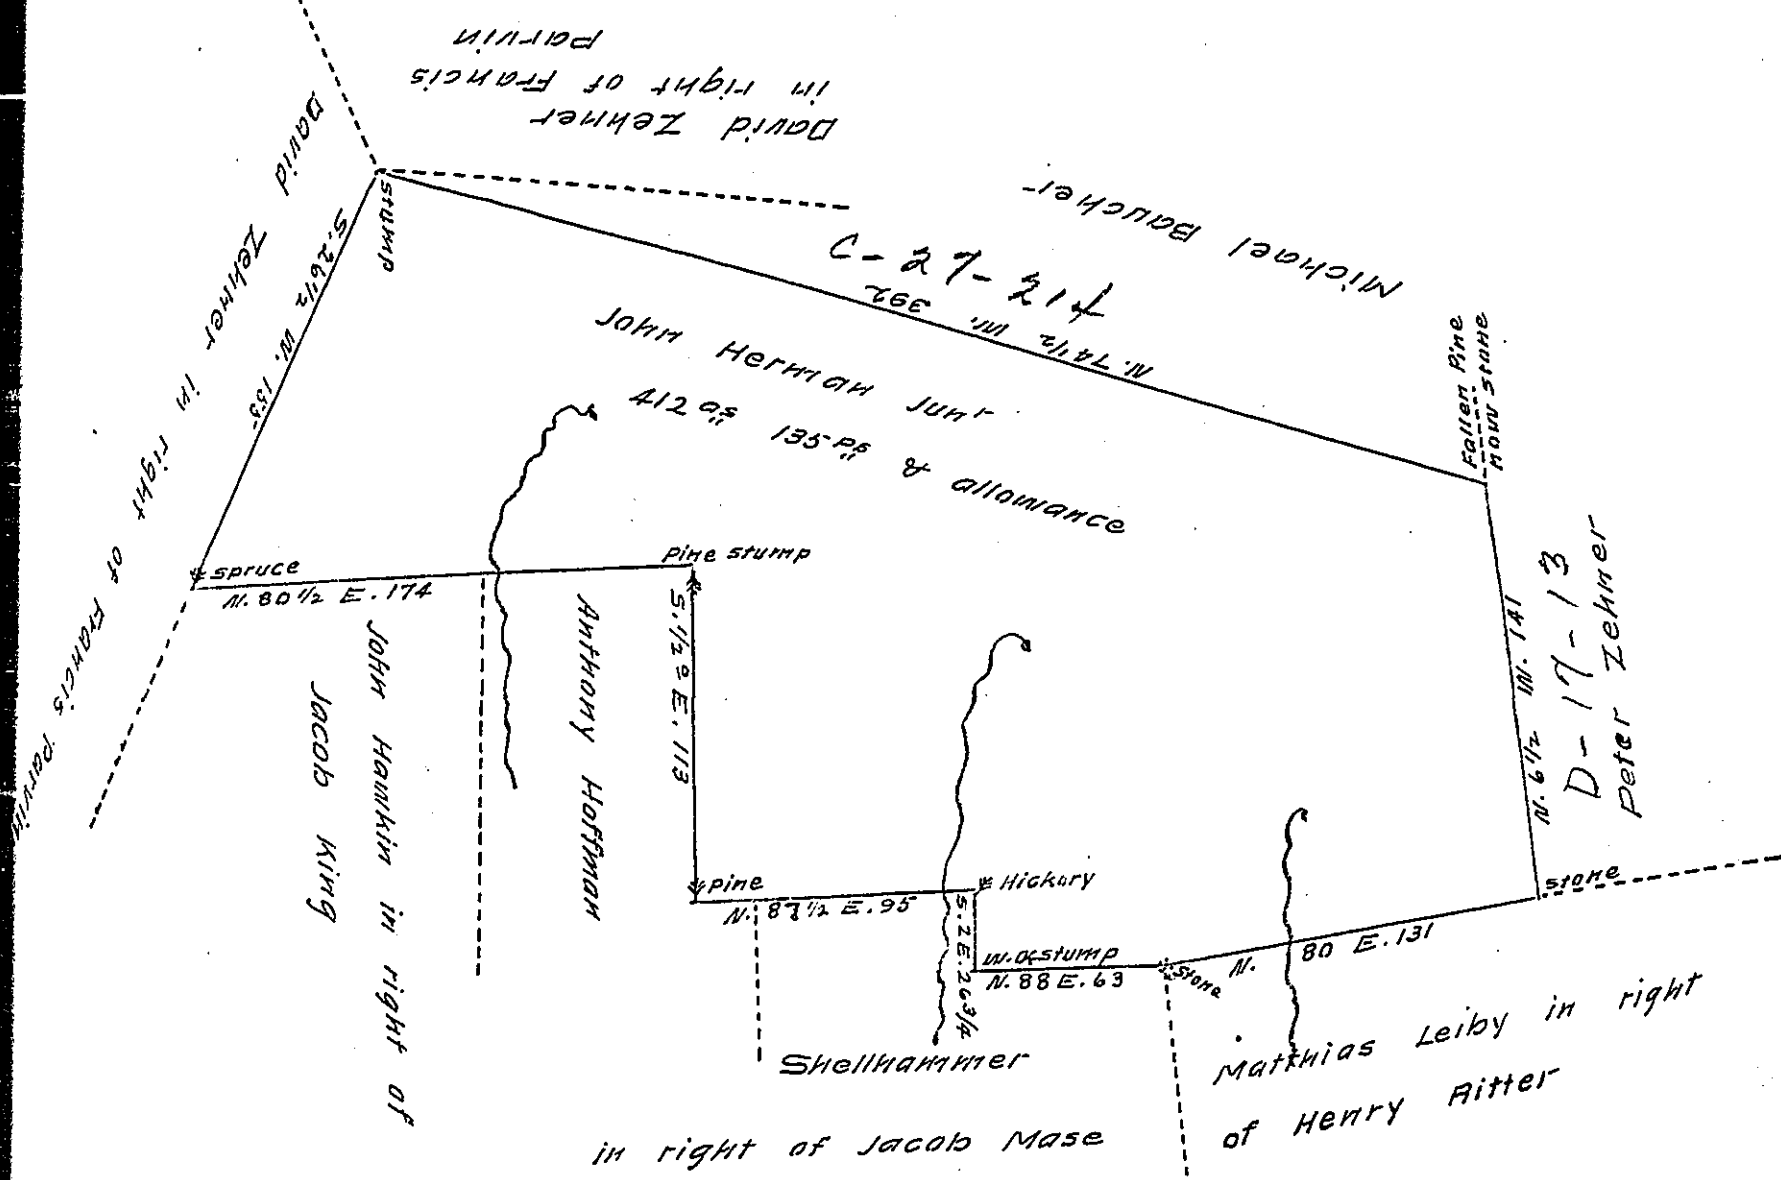 David Zehner
in right of Francis
Parvin
David Zehner in right of Francis Parvin
stump
S. 26 1/2 W. 155
Michael Baucher
C-27-214
N. 74 1/2 W. 392
John Herman Junr
412 as 135 ps & allowance
Fallen Pine
now stone
N. 6 1/2 W. 141
D-17-13
Peter Zehner
Spruce
N. 80 1/2 E. 174
Pine stump
S. 1/2° E. 113
John Hawkin in right of
Jacob King
Anthony Hoffman
Pine
N. 87 1/2 E. 95
Hickory
S. 2 E. 26 3/4
W. oak stump
N. 88 E. 63
Stone
N. 80 E. 131
stone
Shellhammer
in right of Jacob Mase
Matthias Leiby in right
of Henry Ritter